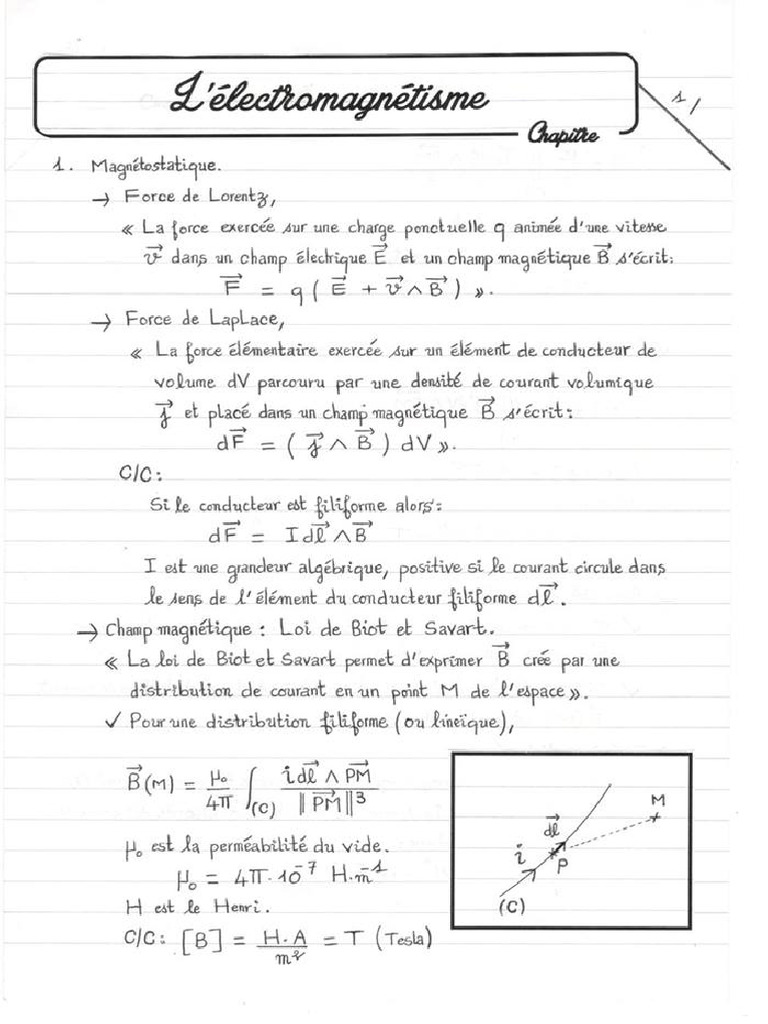 L'électromagnétisme
Chapitre
1/
1. Magnétostatique.
→ Force de Lorentz,
« La force exercée sur une charge ponctuelle q animée d'une vitesse
v⃗ dans un champ électrique E⃗ et un champ magnétique B⃗ s'écrit:
F⃗ = q ( E⃗ + v⃗ ∧ B⃗ ) ».
→ Force de Laplace,
« La force élémentaire exercée sur un élément de conducteur de
volume dV parcouru par une densité de courant volumique
j⃗ et placé dans un champ magnétique B⃗ s'écrit:
dF⃗ = ( j⃗ ∧ B⃗ ) dV ».
C/C:
Si le conducteur est filiforme alors:
dF⃗ = I dl⃗ ∧ B⃗
I est une grandeur algébrique, positive si le courant circule dans
le sens de l'élément du conducteur filiforme dl⃗.
→ Champ magnétique : Loi de Biot et Savart.
« La loi de Biot et Savart permet d'exprimer B⃗ crée par une
distribution de courant en un point M de l'espace ».
✓ Pour une distribution filiforme (ou lineïque),
B⃗(M) = μ₀/4π ∫(C) i dl⃗ ∧ PM⃗ / ‖PM⃗‖³
μ₀ est la perméabilité du vide.
μ₀ = 4π.10⁻⁷ H.m⁻¹
H est le Henri.
C/C: [B] = H.A/m² = T (Tesla)
M
dl⃗
i
P
(C)